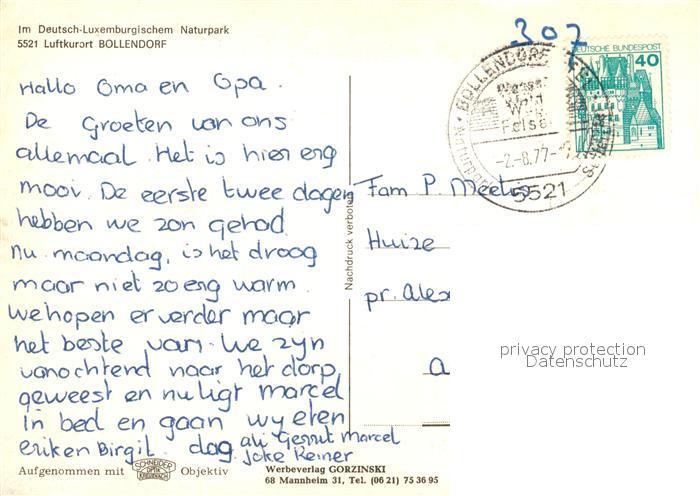 Im Deutsch-Luxemburgischem Naturpark
5521 Luftkurort BOLLENDORF
Hallo Oma en Opa.
De Groeten van ons
allemaal. Het is hier erg
mooi. De eerste twee dagen
hebben we zon gehad
nu maandag, is het droog
maar niet zo erg warm.
we hopen er verder maar
het beste van. We zyn
vanochtend naar het dorp
geweest en nu ligt marcel
in bed en gaan wy eten
eriken Birgit. dag ali Gerrit Marcel
Joke Reiner
Aufgenommen mit SCHNEIDER OPTIK KREUZNACH Objektiv
Werbeverlag GORZINSKI
68 Mannheim 31, Tel. (06 21) 75 36 95
Nachdruck verboten
307
DEUTSCHE BUNDESPOST
40
BOLLENDORF
Wasser
Wald
Felsen
-2.-8.77-
5521
Fam P. Meetis
Huize
pr. Alex
a
privacy protection
Datenschutz